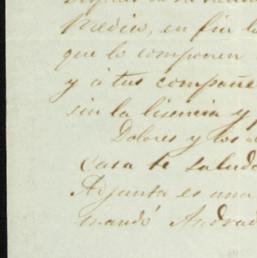 Medico, en fin lo
que lo componen
y á tus compañe
sin la licencia y
Dolores y los
casa te saluda
Adjunta es una
mandó Andrad